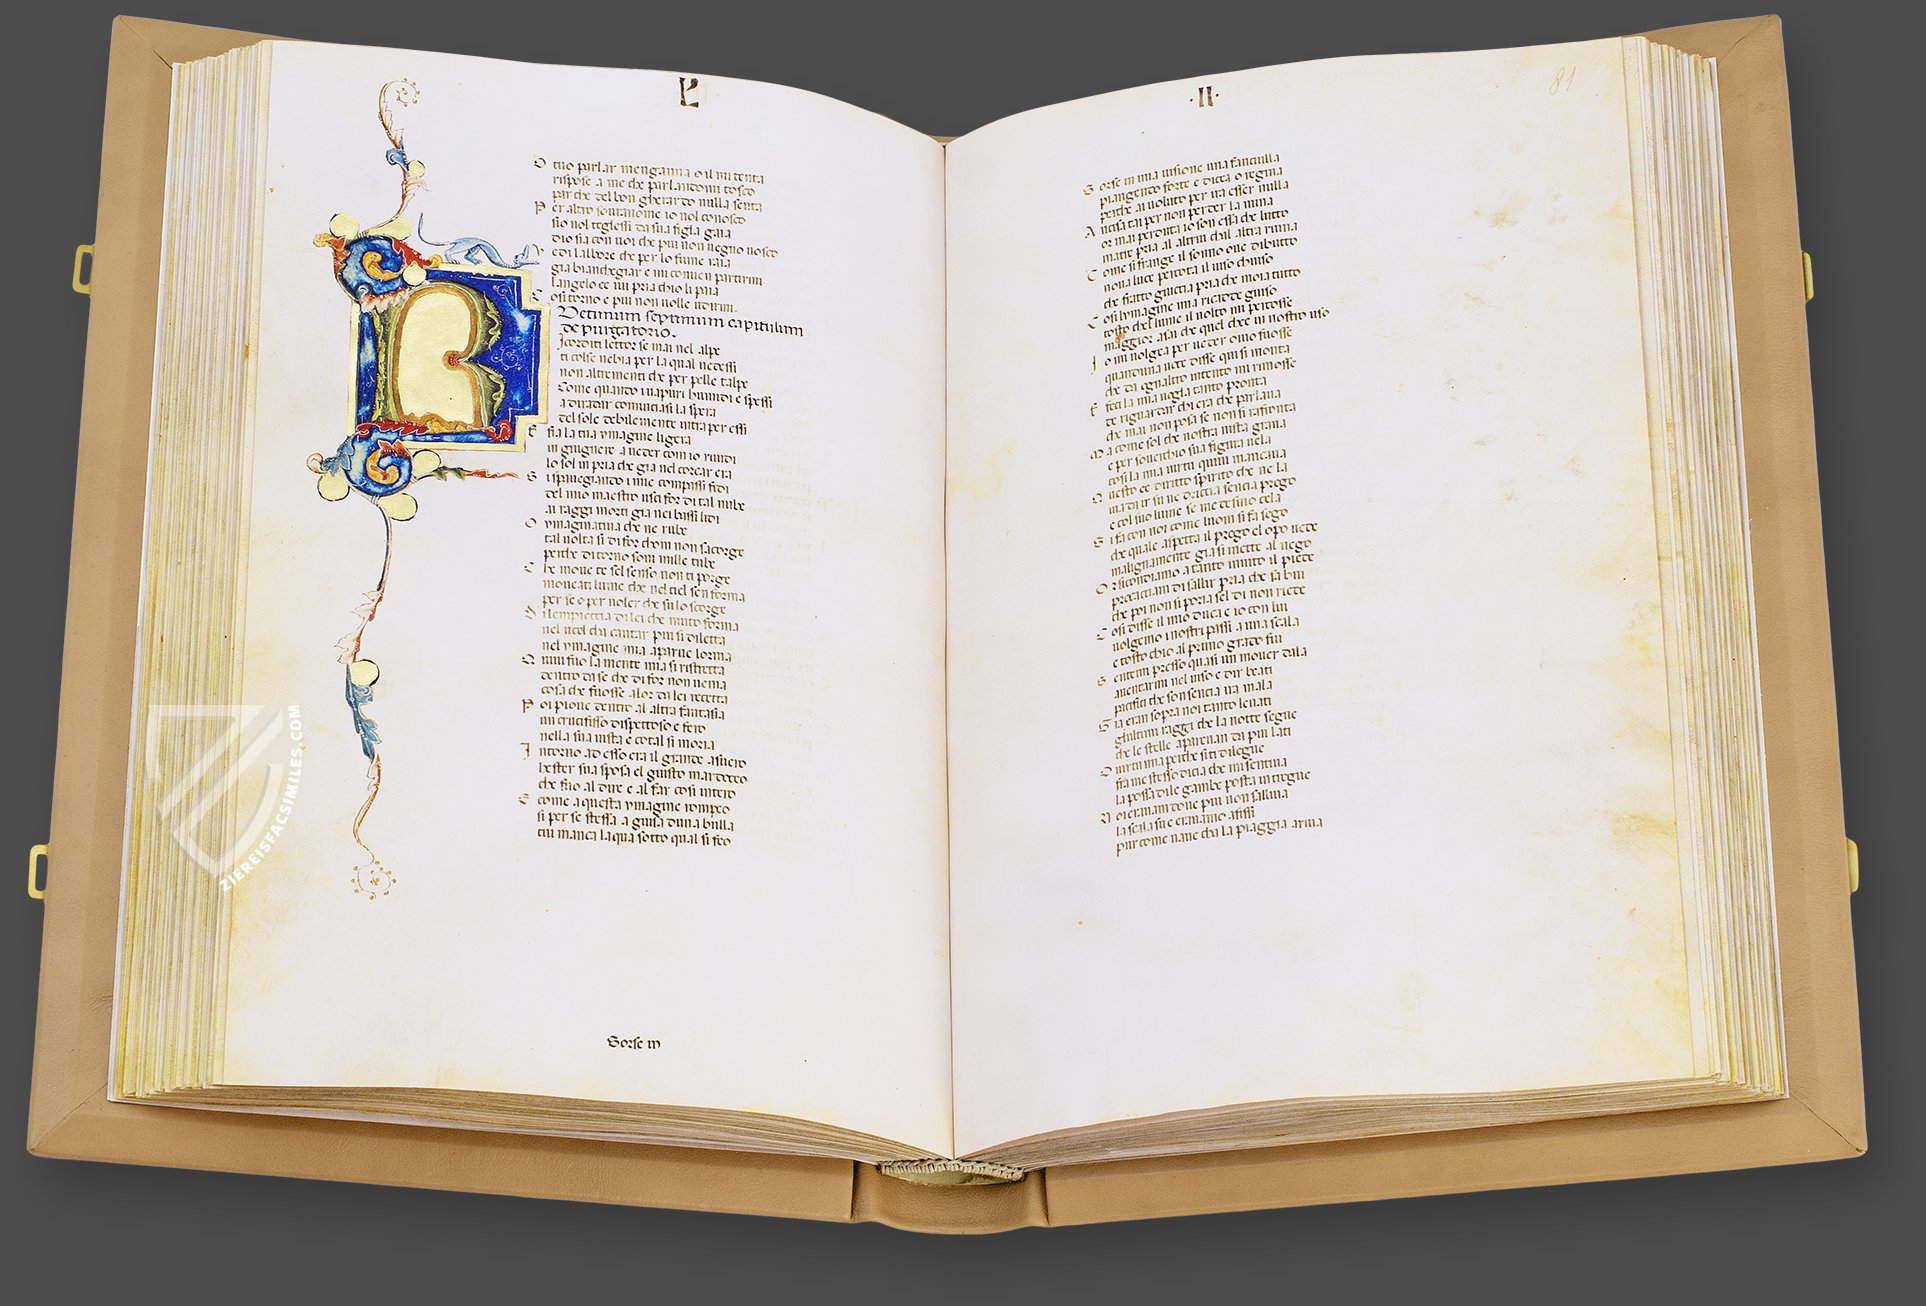 P
O tuo parlar menganna o il mi tenta
rispose a me che parlandomi tosco
par che del bon gherardo nulla senta
P er altro sovranome io nol conosco
sio nol togliessi da sua figla gaia
dio sia con voi che piu non vegno vosco
V edi lalbore che per lo fume raia
gia biancheggiar e mi conven partirmi
langelo ce ivi pria chio li paia
C osi torno e piu non volle udirmi.
Decimum septimum capitulum
de purgatorio.
R icorditi lettor se mai nel alpe
ti colse nebia per la qual vedessi
non altrementi che per pelle talpe
Come quando i vapuri humidi e spessi
a diradar cominciasi la spera
del sole debilemente intra per essi
E fia la tua ymagine ligera
in giugnere a veder com io rividi
lo sol in pria che gia nel corcar era
S i pareggiando i mie co passi fidi
del mio maestro usci for di tal nube
ai raggi morti gia nei bassi lidi
O ymaginativa che ne rube
tal volta si di for chom non sacorge
perche dintorno soni mille tube
C he move te sel senso non ti porge
moveati lume che nel ciel sen forma
per se o per voler che su lo scorge
D e lempiezza di lei che muto forma
nel ucel cha cantar piu si diletta
nel ymagine mia aparve lorma
Q uivi fuo la mente mia si ristretta
dentro da se che di for non venia
cosa che fuosse alor da lei recetta
P oi piove dentro al altra fantasia
un crucifisso dispettoso e fero
nella sua vista e cotal si moria
I ntorno ad esso era il grande asuero
hester sua sposa el giusto mardoceo
che fuo al dire e al far cosi intero
E come aquesta ymagine rompeo
si per se stessa a guisa duna bulla
cui manca laqua sotto qual si feo
Sorse in
·II·
81
S orse in mia visione una fanciulla
piangendo forte e dicea o regina
perche ai voluto per ira esser nulla
A ncisa tai per non perder la vina
or mai perduta io son essa che lutto
matre pria al altrui chal altra ruina
C ome si frange il sonno ove dibutto
nova luce percota il viso chiuso
che fratto guicia pria che moia tutto
C osi lymagine mia ricadde giuso
tosto chel lume il volto mi percosse
maggior asai che quel chee in nostro uso
I o mi volgea per veder ovio fuosse
quanduna voce disse qui si monta
che da ognaltro intento mi rimosse
E feci la mia voglia tanto pronta
de riguardar chi era che parlava
che mai non posa se non si rafronta
M a come sol che nostra vista grava
e per soverchio sua figura vela
cosi la mia virtu quivi mancava
Q uesto ee diritto spirito che ne la
via da ir su ne driccia sencia prego
e col suo lume se medesimo cela
S i fa con noi come luom si fa sego
che quale aspetta il prego el opo vede
malignamente gia si mette al nego
O r sicondiamo a tanto invito il piede
procacciam di sallir pria che sa bui
che poi non si poria sel di non riede
C osi disse il mio duca e io con lui
volgemo i nostri passi a una scala
e tosto chio al primo grado fui
S entemi presso quasi un mover dala
aventarmi nel viso e dir beati
pacifici che son sencia ira mala
G ia eran sopra noi tanto levati
glultimi raggi che la notte segue
che le stelle aparevan da piu lati
O virtu mia perche siti dilegue
fra me stesso dicia che mi sentiva
la possa dile gambe posta in triegue
N oi eravam dove piu non saliva
la scala su e eravamo afissi
pur come nave cha la piaggia ariva
ZIEREISFACSIMILES.COM